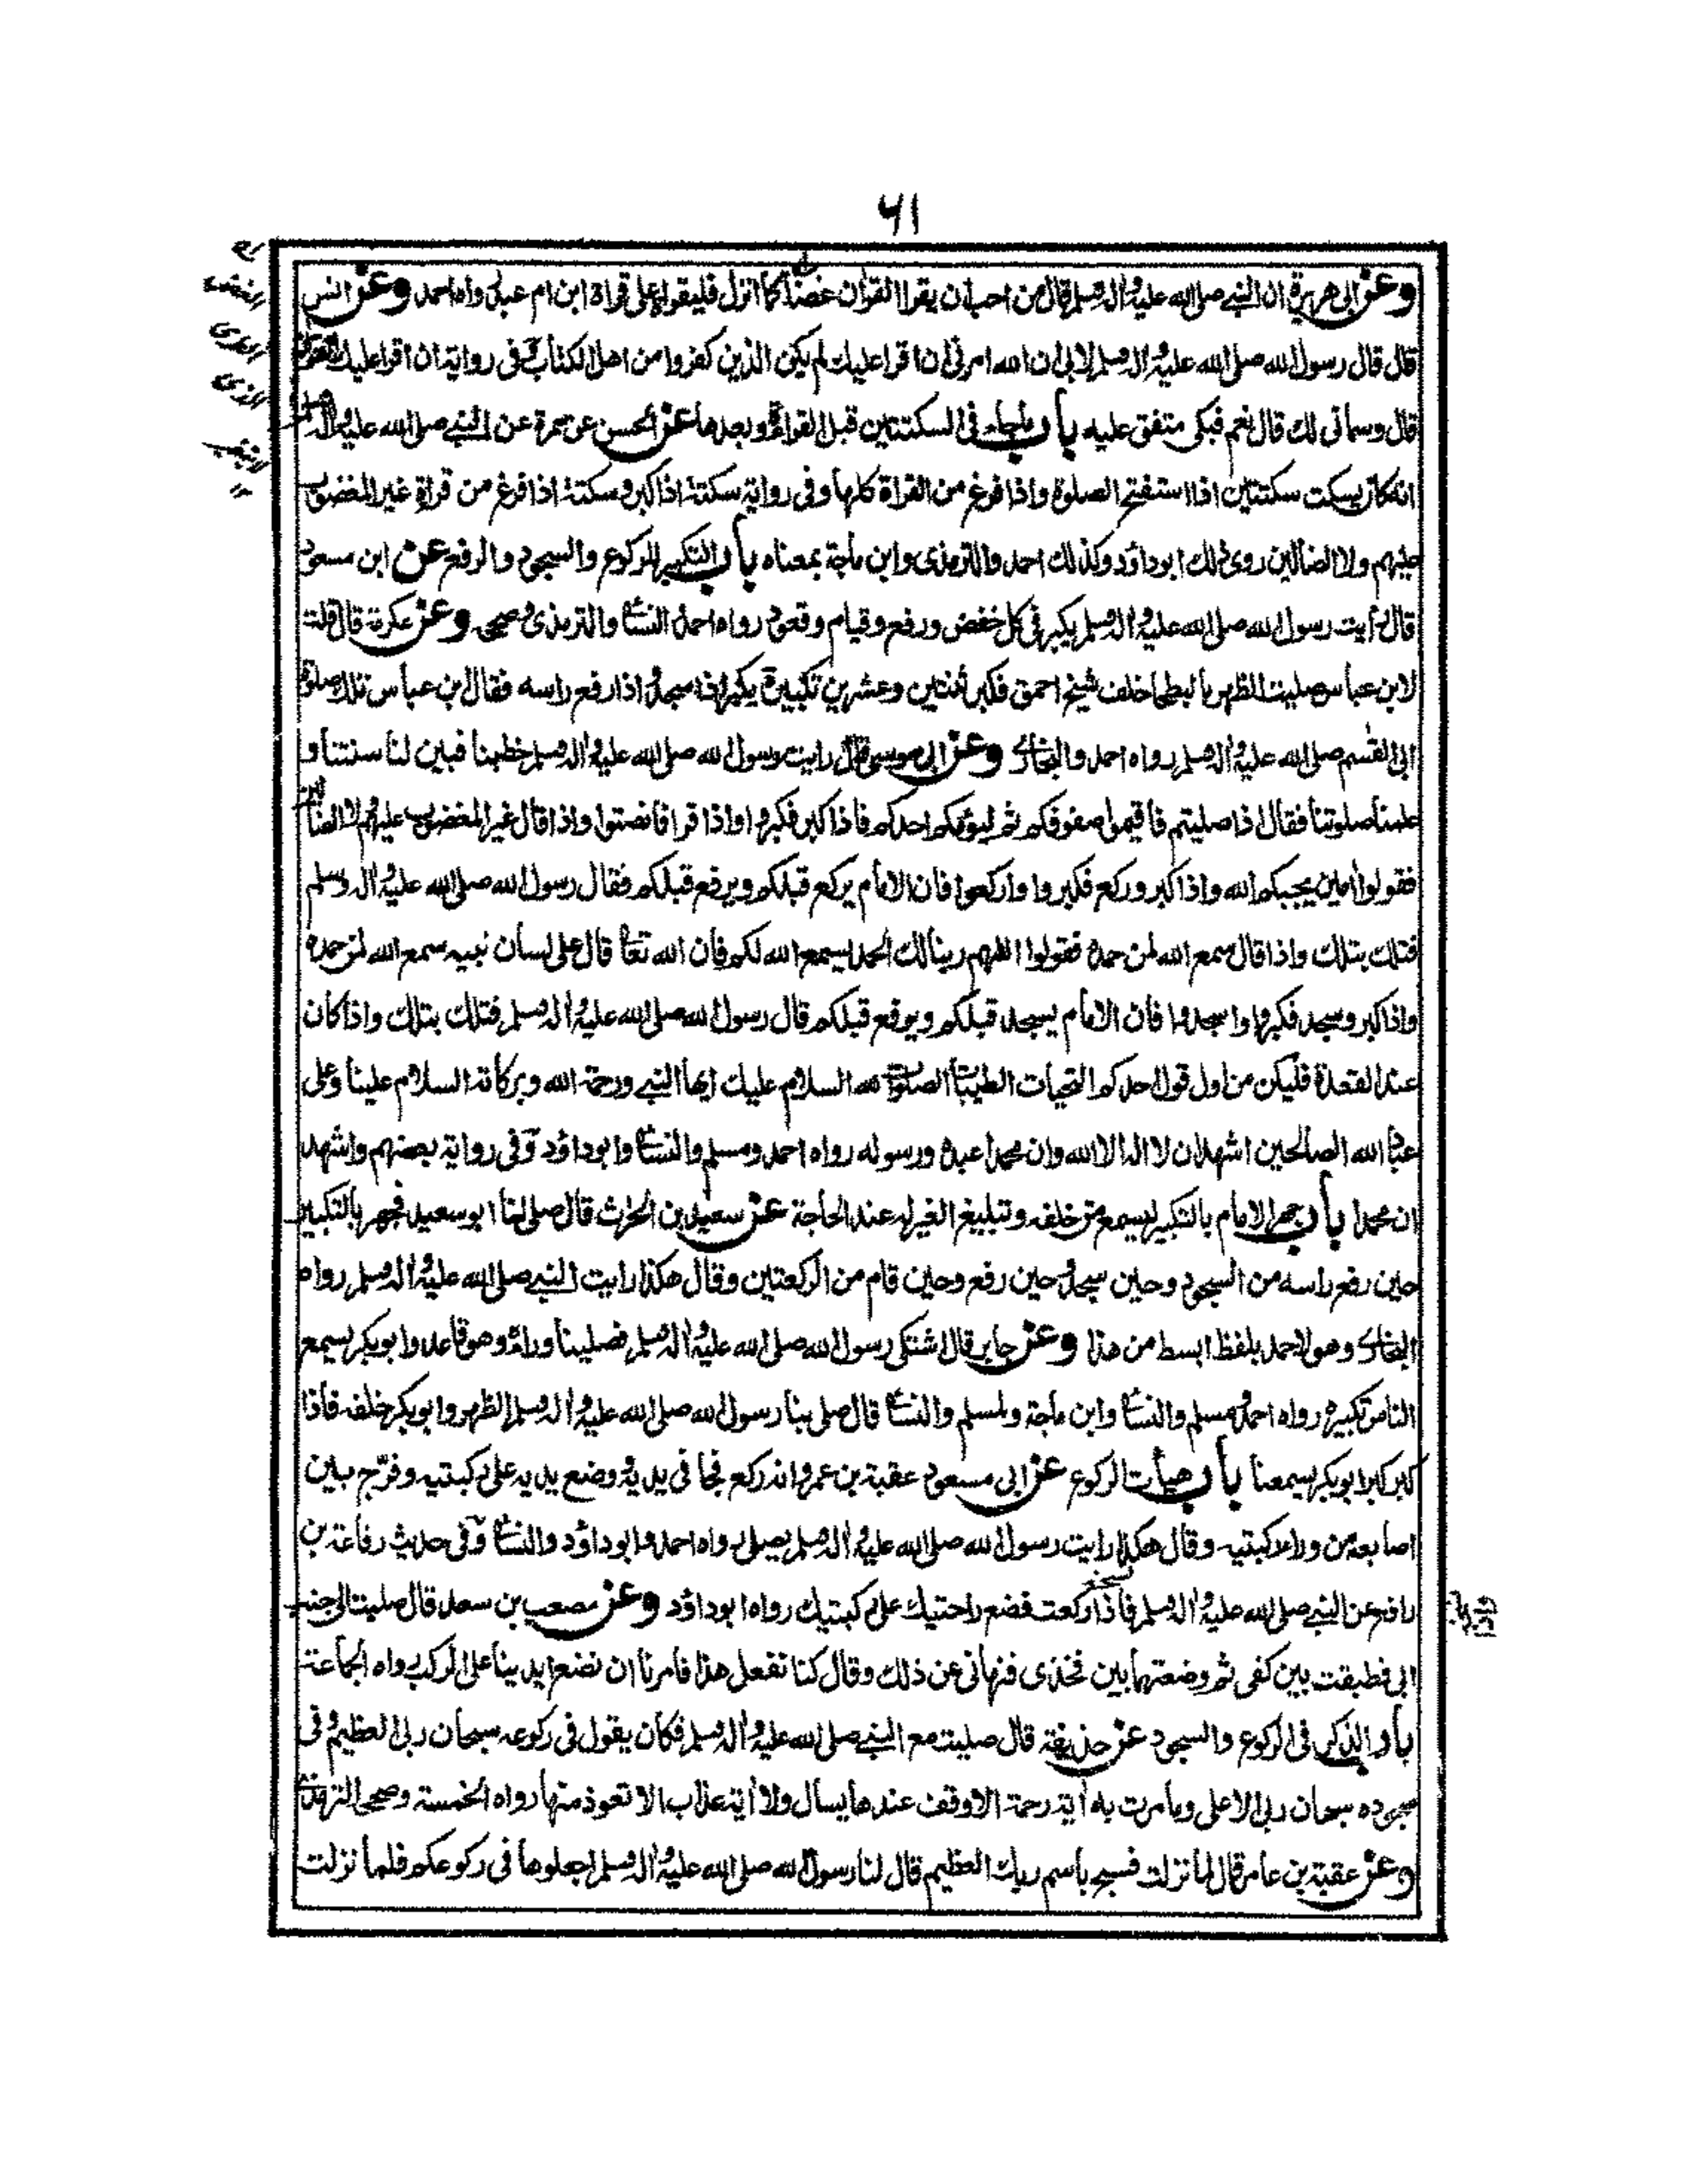 ٦١
وعن ابي هريرة ان النبي صلى الله عليه واله وسلم قال من احب ان يقرا القران غضا كما انزل فليقراه على قراة ابن ام عبد رواه احمد وعن انس
قال قال رسول الله صلى الله عليه واله وسلم لابي ان الله امرني ان اقرا عليك لم يكن الذين كفروا من اهل الكتاب وفي رواية ان اقرا عليك القران
قال وسماني لك قال نعم فبكى متفق عليه باب ما جاء في السكتتين قبل القراة وبعدها عن الحسن عن سمرة عن النبي صلى الله عليه واله وسلم
انه كان يسكت سكتتين اذا استفتح الصلوة واذا فرغ من القراة كلها وفي رواية سكتة اذا كبر وسكتة اذا فرغ من قراة غير المغضوب
عليهم ولا الضالين روى ذلك ابو داؤد وكذلك احمد والترمذى وابن ماجة بمعناه باب التكبير للركوع والسجود والرفع عن ابن مسعود
قال رأيت رسول الله صلى الله عليه واله وسلم يكبر في كل خفض ورفع وقيام وقعود رواه احمد والنسائ والترمذى وصححه وعن عكرمة قال قلت
لابن عباس صليت الظهر بالبطحا خلف شيخ احمق فكبر ثنتين وعشرين تكبيرة يكبر اذا سجد واذا رفع راسه فقال ابن عباس تلك صلوة
ابي القسم صلى الله عليه واله وسلم رواه احمد والبخارى وعن ابي موسى قال رايت رسول الله صلى الله عليه واله وسلم خطبنا فبين لنا سنتنا و
علمنا صلوتنا فقال اذا صليتم فاقيموا صفوفكم ثم ليؤمكم احدكم فاذا كبر فكبروا واذا قرا فانصتوا واذا قال غير المغضوب عليهم ولا الضالين
فقولوا امين يجبكم الله واذا كبر وركع فكبروا واركعوا فان الامام يركع قبلكم ويرفع قبلكم فقال رسول الله صلى الله عليه واله وسلم
فتلك بتلك واذا قال سمع الله لمن حمده فقولوا اللهم ربنا لك الحمد يسمع الله لكم فان الله تعا قال على لسان نبيه سمع الله لمن حمده
واذا كبر وسجد فكبروا واسجدوا فان الامام يسجد قبلكم ويرفع قبلكم قال رسول الله صلى الله عليه واله وسلم فتلك بتلك واذا كان
عند القعدة فليكن من اول قول احدكم التحيات الطيبات الصلوات لله السلام عليك ايها النبي ورحمة الله وبركاته السلام علينا وعلى
عباد الله الصالحين اشهد ان لا اله الا الله وان محمدا عبده ورسوله رواه احمد ومسلم والنسائ وابو داؤد وفي رواية بعضهم واشهد
ان محمدا باب جهر الامام بالتكبير ليسمع من خلفه وتبليغ الغير له عند الحاجة عن سعيد بن الحرث قال صلى لنا ابو سعيد فجهر بالتكبير
حين رفع راسه من السجود وحين سجد وحين رفع وحين قام من الركعتين وقال هكذا رايت النبي صلى الله عليه واله وسلم رواه
البخارى وهو لاحمد بلفظ ابسط من هذا وعن جابر قال اشتكى رسول الله صلى الله عليه واله وسلم فصلينا وراءه وهو قاعد وابو بكر يسمع
الناس تكبيره رواه احمد ومسلم والنسائ وابن ماجة ولمسلم والنسائ قال صلى بنا رسول الله صلى الله عليه واله وسلم الظهر وابو بكر خلفه فاذا
كبر كبر ابو بكر يسمعنا باب هيأت الركوع عن ابي مسعود عقبة بن عمرو انه ركع فجافى يديه ووضع يديه على ركبتيه وفرّج بين
اصابعه من وراء ركبتيه وقال هكذا رايت رسول الله صلى الله عليه واله وسلم يصلي رواه احمد وابو داؤد والنسائ وفي حديث رفاعة بن
رافع عن النبي صلى الله عليه واله وسلم فاذا ركعت فضع راحتيك على ركبتيك رواه ابو داؤد وعن مصعب بن سعد قال صليت الى جنب
ابي فطبقت بين كفي ثم وضعتهما بين فخذى فنهاني عن ذلك وقال كنا نفعل هذا فامرنا ان نضع ايدينا على الركب رواه الجماعة
باب الذكر في الركوع والسجود عن حذيفة قال صليت مع النبي صلى الله عليه واله وسلم فكان يقول في ركوعه سبحان ربي العظيم وفي
سجوده سبحان ربي الاعلى وما مرت به اية رحمة الا وقف عندها يسال ولا أية عذاب الا تعوذ منها رواه الخمسة وصححه الترمذى
وعن عقبة بن عامر قال لما نزلت فسبح باسم ربك العظيم قال لنا رسول الله صلى الله عليه واله وسلم اجعلوها في ركوعكم فلما نزلت